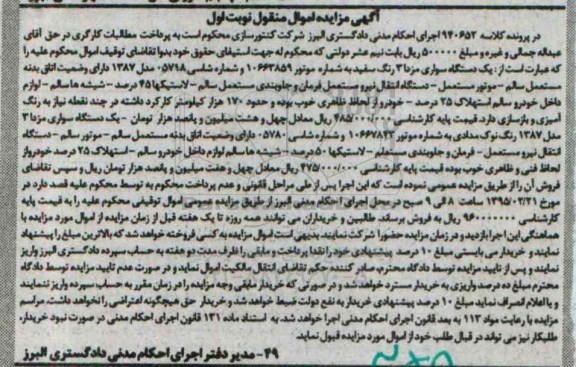 آگهی مزایده اموال منقول نوبت اول
در پرونده کلاسه ۹۴۰۶۵۲ اجرای احکام مدنی دادگستری البرز شرکت کنتورسازی محکوم است به پرداخت مطالبات کارگری در حق آقای
عبداله جمالی و غیره و مبلغ ۵۰۰۰۰۰ ریال بابت نیم عشر دولتی که محکوم له جهت استیفای حقوق خود بدوا تقاضای توقیف اموال محکوم علیه را
که عبارت است از : یک دستگاه سواری مزدا ۳ رنگ سفید به شماره موتور ۱۰۶۶۳۸۵۹ و شماره شاسی ۰۵۷۹۸ مدل ۱۳۸۷ دارای وضعیت اتاق بدنه
مستعمل سالم - موتور مستعمل - دستگاه انتقال نیرو مستعمل فرمان و جلوبندی مستعمل سالم - لاستیکها ۴۵ درصد - شیشه ها سالم - لوازم
داخل خودرو سالم استهلاک ۲۵ درصد - خودرو از لحاظ ظاهری خوب بوده و حدود ۱۷۰ هزار کیلومتر کارکرد داشته در چند نقطه نیاز به رنگ
آمیزی و بازسازی دارد. قیمت پایه کارشناسی ۴۸۵/۰۰۰/۰۰۰ ریال معادل چهل و هشت میلیون و پانصد هزار تومان - یک دستگاه سواری مزدا ۳
مدل ۱۳۸۷ رنگ نوک مدادی به شماره موتور ۱۰۶۶۷۸۴۲ و شماره شاسی ۰۵۷۸۰ دارای وضعیت اتاق بدنه مستعمل سالم - موتور سالم - دستگاه
انتقال نیرو مستعمل - فرمان و جلوبندی مستعمل - لاستیکها ۵۰ درصد - شیشه ها سالم لوازم داخل خودرو سالم - استهلاک ۲۵ درصد خودرو از
لحاظ فنی و ظاهری خوب بوده قیمت پایه کارشناسی ۴۷۵/۰۰۰/۰۰۰ ریال معادل چهل و هفت میلیون و پانصد هزار تومان ریال و سپس تقاضای
فروش آن را از طریق مزایده عمومی نموده است که این اجرا پس از طی مراحل قانونی و عدم پرداخت محکوم به توسط محکوم علیه قصد دارد در
مورخ ۱۳۹۵/۰۲/۲۱ ساعت ۸ الی ۹ صبح در محل اجرای احکام مدنی البرز از طریق مزایده عمومی اموال توقیفی محکوم علیه را به قیمت پایه
کارشناسی ۹۶۰۰۰۰۰۰۰ ریال به فروش برساند. طالبین و خریداران می توانند همه روزه تا یک هفته قبل از زمان مزایده از اموال مورد مزایده با
هماهنگی این اجرا بازدید و در زمان مزایده حضورا شرکت نمایند. بدیهی است اموال مزایده به کسی فروخته خواهد شد که بالاترین مبلغ را پیشنهاد
نمایند و خریدار می بایستی مبلغ ۱۰ درصد پیشنهادی خود را نقدا پرداخت و مابقی را ظرف مدت دو هفته به حساب سپرده دادگستری البرز واریز
نمایند و پس از تایید مزایده توسط دادگاه محترم صادر کننده حکم تقاضای انتقال مالکیت اموال نماید و در صورت عدم تایید مزایده توسط دادگاه
محترم مبلغ ده درصد واریزی به خریدار مسترد خواهد شد و در صورتی که خریدار مابقی وجه مزایده را در زمان مقرر به حساب سپرده واریز ننمایند
و یا اعلام انصراف نماید مبلغ ۱۰ درصد پیشنهادی خریدار به نفع دولت ضبط خواهد شد و خریدار حق هیچگونه اعتراضی را نخواهد داشت. مراسم
مزایده با رعایت مواد ۱۱۳ به بعد قانون اجرای احکام مدنی اجرا خواهد شد. به استناد ماده ۱۳۱ قانون اجرای احکام مدنی در صورت نبود خریدار،
طلبکار نیز می تواند در قبال طلب خود از اموال مورد مزایده قبول نماید.
۴۹- مدیر دفتر اجرای احکام مدنی دادگستری البرز